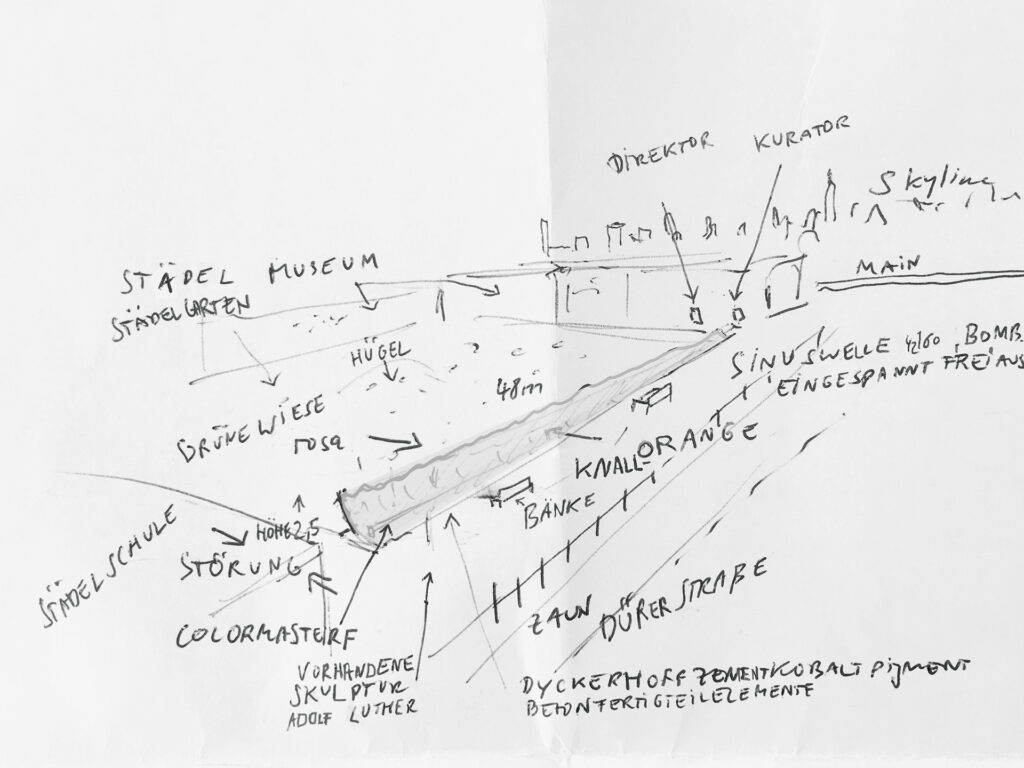 DIREKTOR KURATOR
Skyline
STÄDEL MUSEUM
STÄDELGARTEN
MAIN
HÜGEL
48m
SINUSWELLE 42/60 BOMB.
EINGESPANNT FREI AUS
GRÜNE WIESE
rosa
KNALL-ORANGE
BÄNKE
HÖHE 2,5
STÄDELSCHULE
STÖRUNG
ZAUN
DÜRERSTRAßE
COLORMASTERF
VORHANDENE
SKULPTUR
ADOLF LUTHER
DYCKERHOFF ZEMENT KOBALT PIGMENT
BETONFERTIGTEILELEMENTE